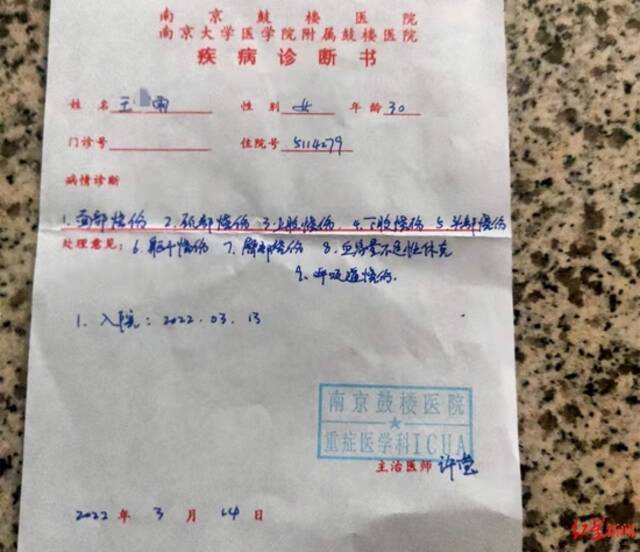 南京鼓楼医院
南京大学医学院附属鼓楼医院
疾病诊断书
姓名 王 雨 性别 女 年龄 30
门诊号 住院号 5114279
病情诊断
1. 面部烧伤 2. 颈部烧伤 3. 上肢烧伤 4. 下肢烧伤 5. 头部烧伤
处理意见: 6. 躯干烧伤 7. 臀部烧伤 8. 血容量不足性休克
9. 呼吸道烧伤.
1. 入院: 2022.03.13
南京鼓楼医院
重症医学科ICUA
主治医师 许莹
2022 年 3 月 14 日
红星新闻